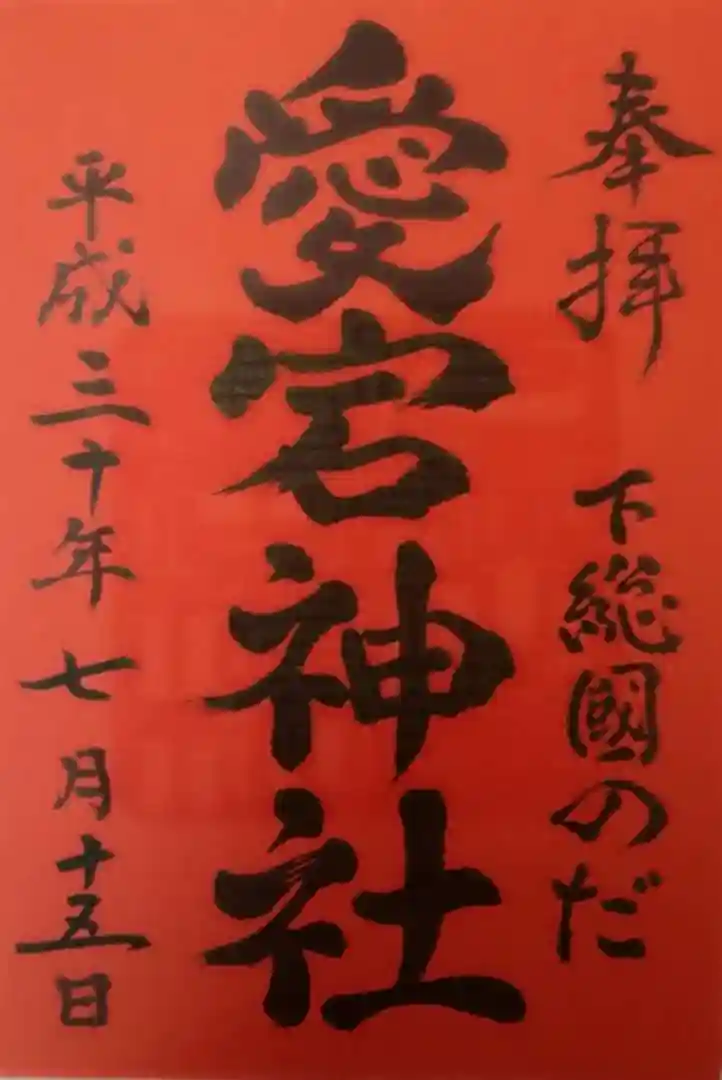 奉拝　下総國のだ
愛宕神社
平成三十年七月十五日